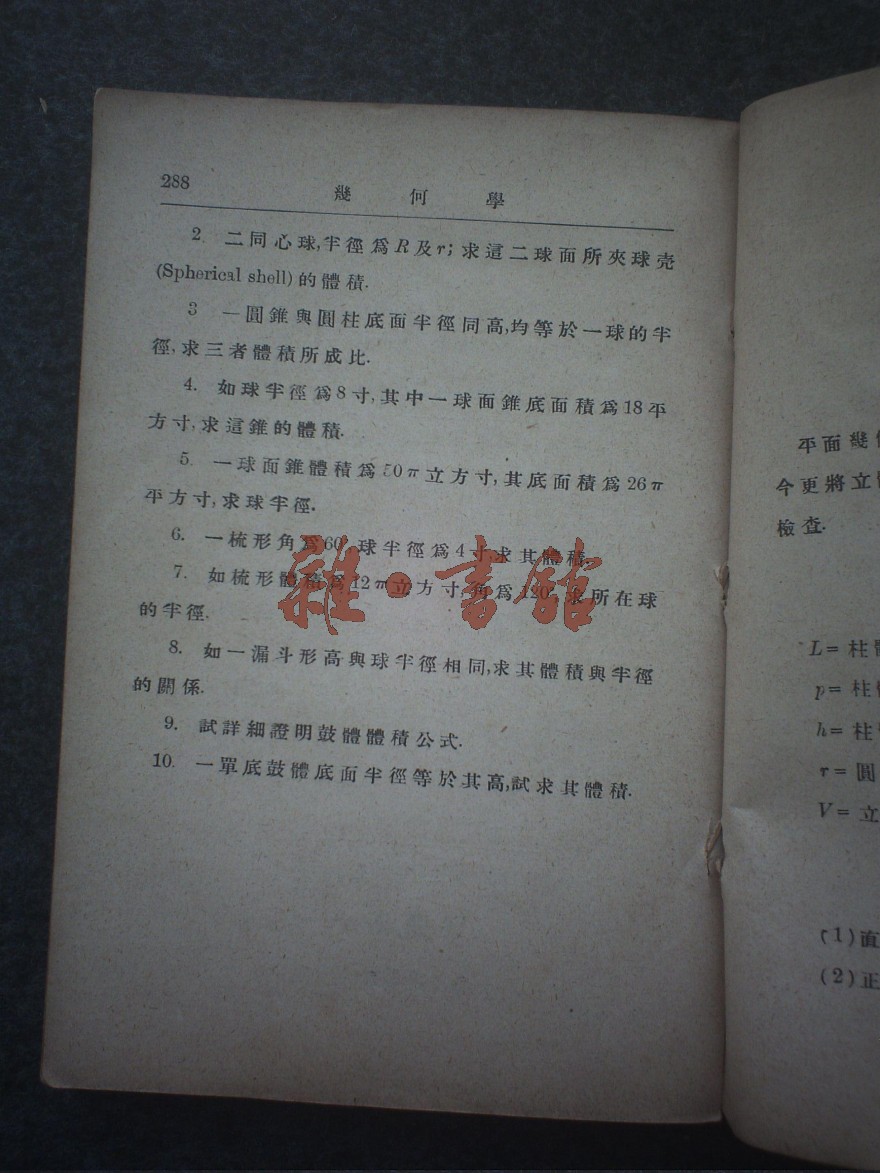 288
幾何學
2. 二同心球,半徑爲R及r;求這二球面所夾球壳
(Spherical shell)的體積.
3 一圓錐與圓柱底面半徑同高,均等於一球的半
徑,求三者體積所成比.
4. 如球半徑爲8寸,其中一球面錐底面積爲18平
方寸,求這錐的體積.
5. 一球面錐體積爲50π立方寸,其底面積爲26π
平方寸,求球半徑.
6. 一梳形角爲60°球半徑爲4寸求其體積.
7. 如梳形體積爲12π立方寸,角爲120°求所在球
的半徑.
8. 如一漏斗形高與球半徑相同,求其體積與半徑
的關係.
9. 試詳細證明鼓體體積公式.
10. 一單底鼓體底面半徑等於其高,試求其體積.
雜·書館
平面幾
今更將立
檢查.
L=柱
p=柱
h=柱
r=圓
V=立
(1)直
(2)正